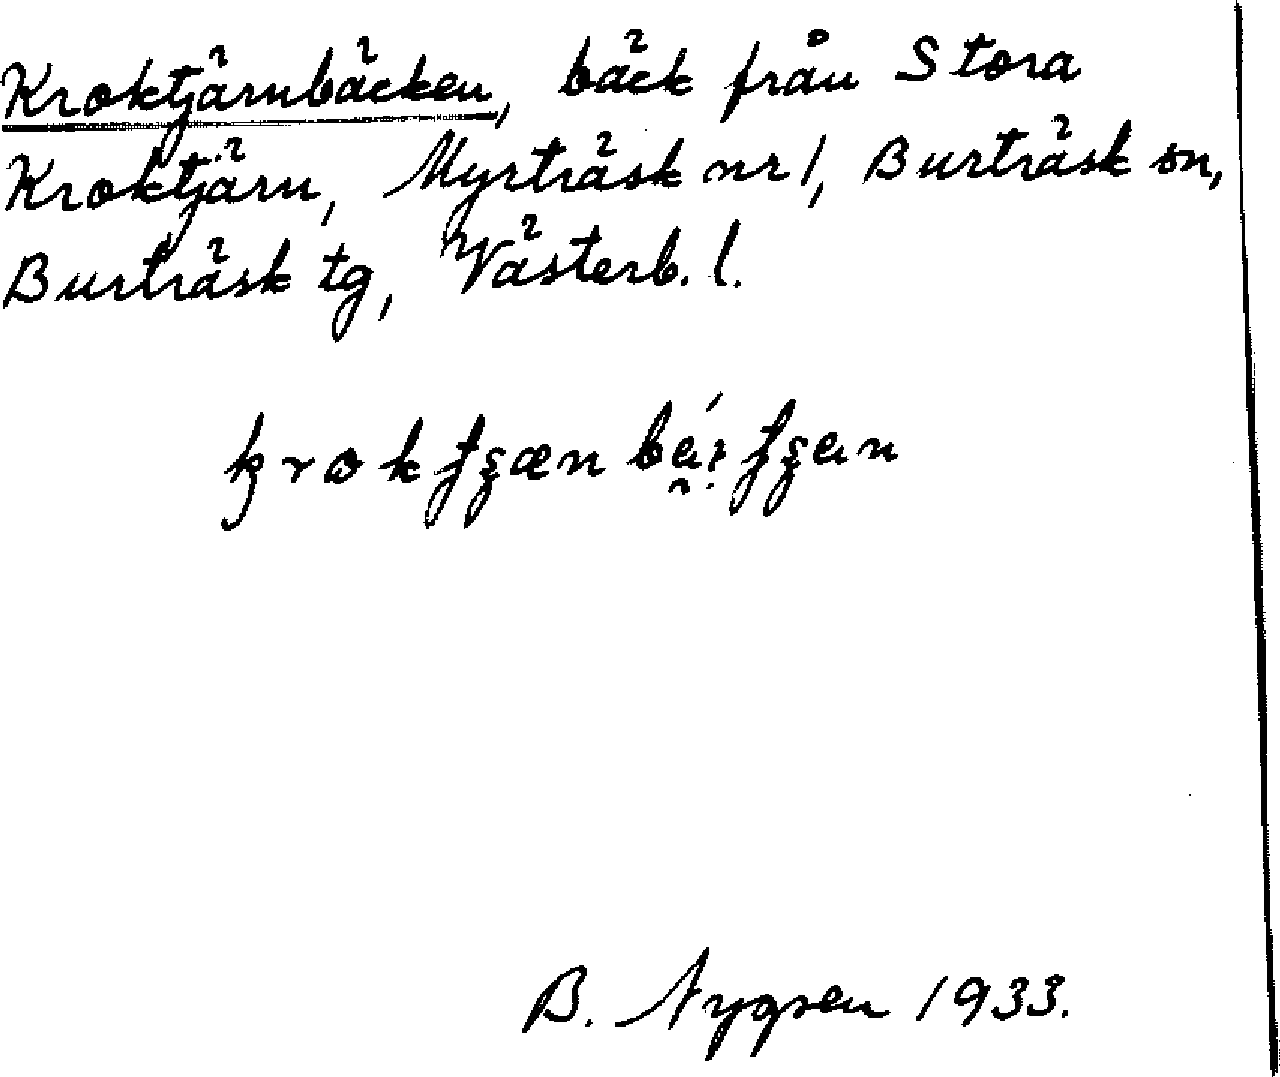 Kroktjärnbäcken, bäck från Stora
Kroktjärn, Myrträsk nr 1, Burträsk sn,
Burträsk tg, Västerb. l.
B. Nygren 1933.